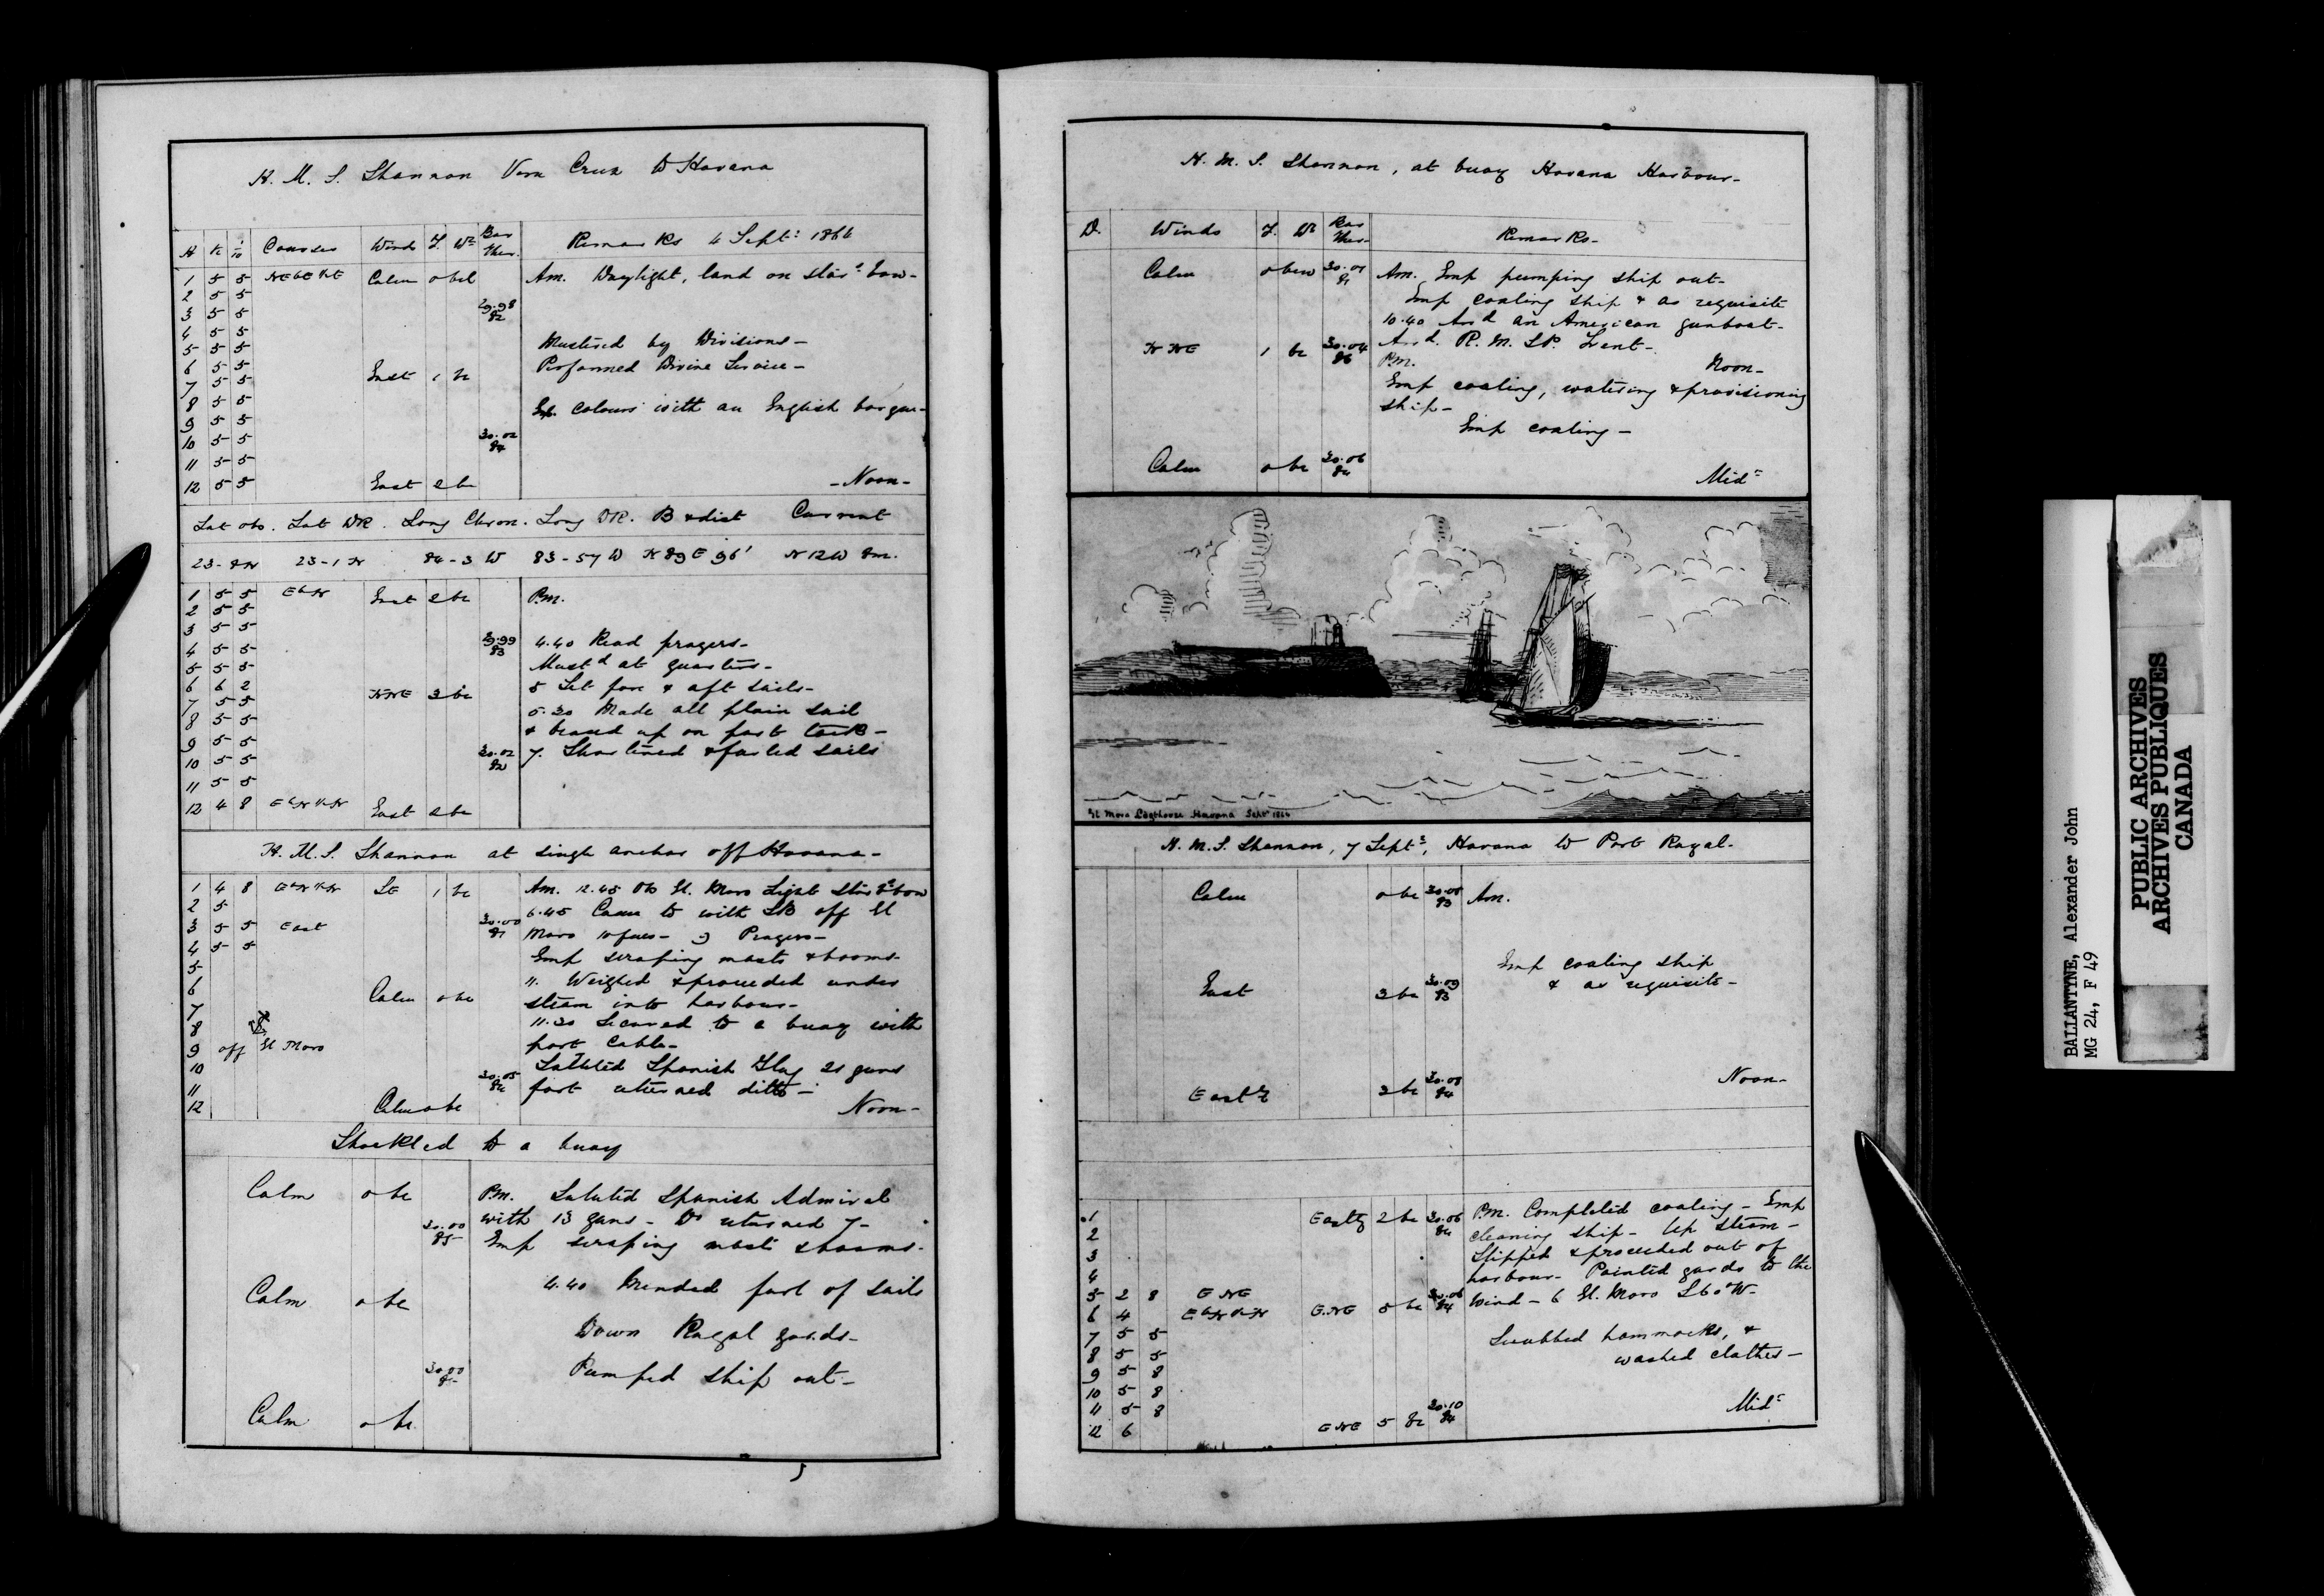 H. M. S. Shannon Vera Cruz to Havana
H K 1/10 Courses Wind F. Wr Bar Ther. Remarks 4 Septr 1864
1 5 5 NEbE½E Calm 0 bcl Am. Daylight, land on stard bow-
2 5 5
3 5 5 29.98 82
4 5 5 Mustered by Divisions-
5 5 5 Performed Divine Service-
6 5 5 East 1 bc
7 5 5
8 5 5 Ex. Colours with an English barque-
9 5 5
10 5 5 30.02 84
11 5 5
12 5 5 East 2 bc -Noon-
Lat obs. Lat DR. Long Chron. Long DR. B & dist Current
23-8N 23-1N 84-3 W 83-57 W N 89 E 96' N 12 W 8m.
1 5 5 EbN East 2 bc P.M.
2 5 5
3 5 5
4 5 5 29.99 83 4.40 Read prayers-
5 5 5 Mustd at quarters-
6 6 2 NNE 3 bc 5 Set fore & aft sails-
7 5 5 5.30 Made all plain sail
8 5 5 & braced up on port tack-
9 5 5 7. Shortened & furled sails
10 5 5 30.02 82
11 5 5
12 4 8 EbN½N East 2 bc
H. M. S. Shannon at single anchor off Havana-
1 4 8 EbN½N SE 1 bc Am. 12.45 Obs El. Moro Light Stard bow
2 5 6.45 Came to with SB off El
3 5 5 East 30.00 81 Moro 10 fms- 9 Prayers-
4 5 5 Emp scraping masts & booms-
5 11. Weighed & proceeded under
6 Calm 0 bc steam into harbour-
7 11.30 Secured to a buoy with
8 port cable-
9 off El Moro Saluted Spanish Flag 21 guns
10 30.05 84 fort returned ditto-
11
12 Calm 0 bc Noon-
Shackled to a buoy
Calm 0 bc P.M. Saluted Spanish Admiral
30.00 85 with 13 guns- Do returned 7-
Emp scraping masts & booms-
Calm 0 bc 4.40 Mended furl of sails
Down Royal yards-
30.00 Pumped ship out-
Calm 0 bc
H. M. S. Shannon, at buoy Havana Harbour-
D. Winds F. Wr Bar Ther- Remarks-
Calm 0 bcw 30.01 81 Am. Emp pumping ship out-
Emp coaling ship & as requisite
10.40 Arrd an American gunboat-
N NE 1 bc 30.04 86 Arrd. R. M. SP. Trent-
P.M. Noon-
Emp coaling, watering & provisioning
ship-
Emp coaling-
Calm 0 bc 30.06 84 Midt
El Moro Lighthouse Havana Septr 1864
H. M. S. Shannon, 7 Septr, Havana to Port Royal-
Calm 0 bc 30.05 83 Am.
Emp coaling ship
East 3 bc 30.09 83 & as requisite-
Noon-
Eastr 3 bc 30.08 84
1 Eastly 2 bc 30.06 84 P.M. Completed coaling- Emp
2 cleaning ship- Up steam-
3 Slipped & proceeded out of
4 harbour- Pointed yards to the
5 2 8 ENE 30.06 84 Wind- 6 El. Moro S 60° W-
6 4 EbN½N E.NE 5 bc
7 5 5 Scrubbed hammocks, &
8 5 5 washed clothes-
9 5 8
10 5 8
11 5 8 30.10 84 Midt
12 6 ENE 5 bc
BALLANTYNE, Alexander John
MG 24, F 49
PUBLIC ARCHIVES
ARCHIVES PUBLIQUES
CANADA